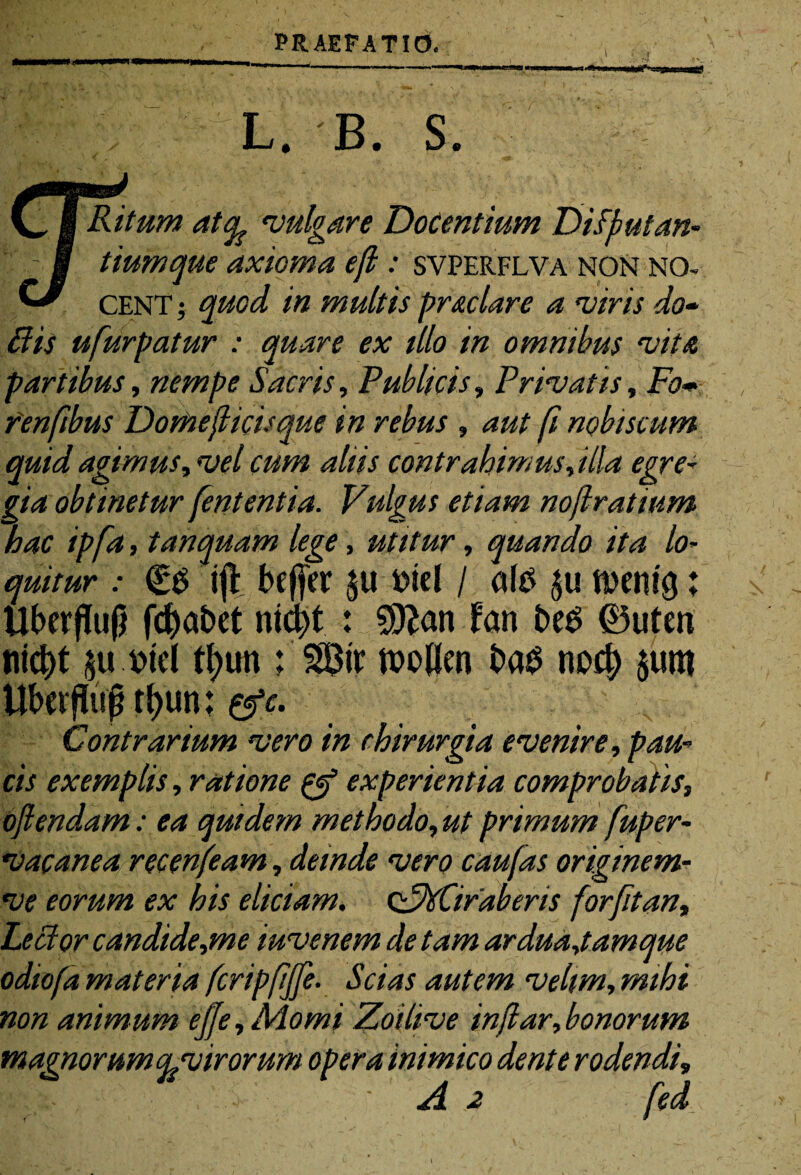 PRAEFATIO.
L. B. S.
TRitum atq́; vulgare Docentium Diſputan-
tiumque axioma eſt : SVPERFLVA NON NO-
CENT; quod in multis præclare a viris do-
ctis uſurpatur : quare ex illo in omnibus vitæ
partibus, nempe Sacris, Publicis, Privatis, Fo-
renſibus Domeſticisque in rebus , aut ſi nobiscum
quid agimus, vel cum aliis contrahimus, illa egre-
gia obtinetur ſententia. Vulgus etiam noſtratium
hac ipſa, tanquam lege, utitur , quando ita lo-
quitur : Es iſt beſſer zu viel / als zu wenig :
Uberfluß ſchadet nicht : Man kan des Guten
nicht zu viel thun : Wir wollen das noch zum
Uberfluß thun: &c.
Contrarium vero in chirurgia evenire, pau-
cis exemplis, ratione & experientia comprobatis,
oſtendam: ea quidem methodo, ut primum ſuper-
vacanea recenſeam, deinde vero cauſas originem-
ve eorum ex his eliciam. Miraberis forſitan,
Lector candide, me iuvenem de tam ardua, tamque
odioſa materia ſcripſiſſe. Scias autem velim, mihi
non animum eſſe, Momi Zoilive inſtar, bonorum
magnorumq́; virorum opera inimico dente rodendi,
A 2 ſed